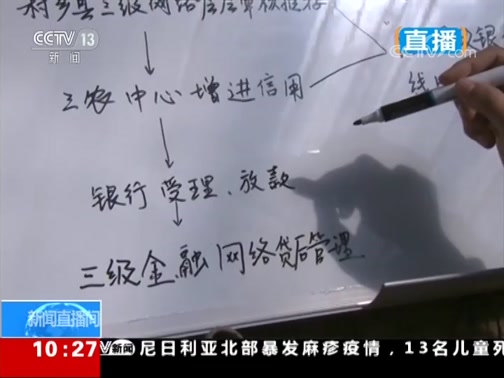 村乡县三级网络层层审核推荐
CCTV 13
新闻
直播
CCTV.com
银
线
三农中心增进信用
银行受理、放款
三级金融网络贷后管理
新闻直播间
10:27
V新闻
尼日利亚北部暴发麻疹疫情，13名儿童死